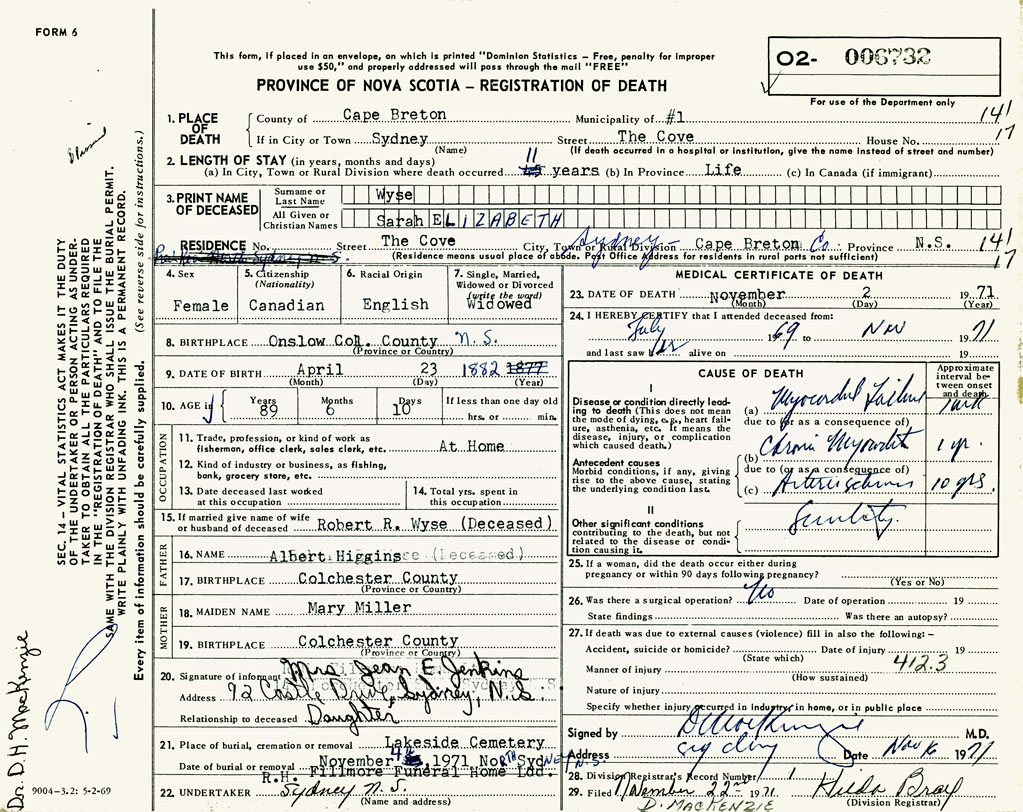 FORM 6
This form, if placed in an envelope, on which is printed "Dominion Statistics – Free, penalty for improper
use $50," and properly addressed will pass through the mail "FREE"
O2- 006732
For use of the Department only
PROVINCE OF NOVA SCOTIA – REGISTRATION OF DEATH
1. PLACE OF DEATH
County of Cape Breton Municipality of #1 141
If in City or Town Sydney Street The Cove House No. 17
(Name) (If death occurred in a hospital or institution, give the name instead of street and number)
2. LENGTH OF STAY (in years, months and days)
(a) In City, Town or Rural Division where death occurred 11 years (b) In Province Life (c) In Canada (if immigrant)
3. PRINT NAME OF DECEASED
Surname or Last Name Wyse
All Given or Christian Names Sarah ELIZABETH
RESIDENCE No. Street The Cove City, Town or Rural Division Sydney Cape Breton Co. Province N.S. 141
(Residence means usual place of abode. Post Office Address for residents in rural parts not sufficient) 17
4. Sex Female
5. Citizenship (Nationality) Canadian
6. Racial Origin English
7. Single, Married, Widowed or Divorced (write the word) Widowed
8. BIRTHPLACE Onslow Col. County N.S.
(Province or Country)
9. DATE OF BIRTH April 23 1882 1877
(Month) (Day) (Year)
10. AGE Years 89 Months 6 Days 10 If less than one day old hrs. or min.
OCCUPATION
11. Trade, profession, or kind of work as fisherman, office clerk, sales clerk, etc. At Home
12. Kind of industry or business, as fishing, bank, grocery store, etc.
13. Date deceased last worked at this occupation
14. Total yrs. spent in this occupation
15. If married give name of wife or husband of deceased Robert R. Wyse (Deceased)
FATHER
16. NAME Albert Higgins (Deceased)
17. BIRTHPLACE Colchester County
(Province or Country)
MOTHER
18. MAIDEN NAME Mary Miller
19. BIRTHPLACE Colchester County
(Province or Country)
20. Signature of informant Mrs Jean E. Jenkins
Address 92 Castle Drive, Sydney, N.S.
Relationship to deceased Daughter
21. Place of burial, cremation or removal Lakeside Cemetery
Date of burial or removal November 4, 1971 NORTH SYDNEY N.S.
22. UNDERTAKER R.H. Fillmore Funeral Home Ltd.
Sydney N.S.
(Name and address)
MEDICAL CERTIFICATE OF DEATH
23. DATE OF DEATH November 2 1971
(Month) (Day) (Year)
24. I HEREBY CERTIFY that I attended deceased from:
July 1969 to Nov 1971
and last saw her alive on 19
CAUSE OF DEATH
Approximate interval between onset and death
I
Disease or condition directly leading to death (This does not mean the mode of dying, e.g., heart failure, asthenia, etc. It means the disease, injury, or complication which caused death.)
(a) Myocardial Failure
due to (or as a consequence of)
Antecedent causes
Morbid conditions, if any, giving rise to the above cause, stating the underlying condition last.
(b) Chronic 1 yr.
due to (or as a consequence of)
(c) 10 yrs.
II
Other significant conditions contributing to the death, but not related to the disease or condition causing it. Senility.
25. If a woman, did the death occur either during pregnancy or within 90 days following pregnancy?
(Yes or No)
26. Was there a surgical operation? No Date of operation 19
State findings Was there an autopsy?
27. If death was due to external causes (violence) fill in also the following: –
Accident, suicide or homicide? Date of injury 19
(State which) 412.3
Manner of injury
(How sustained)
Nature of injury
Specify whether injury occurred in industry, in home, or in public place
Signed by D MacKenzie M.D.
Address Sydney Date Nov 6 1971
28. Division Registrar's Record Number 1
29. Filed November 22nd 1971 Hilda Bray
(Division Registrar)
D. MACKENZIE
SEC. 14 – VITAL STATISTICS ACT MAKES IT THE DUTY
OF THE UNDERTAKER OR PERSON ACTING AS UNDER-
TAKER TO OBTAIN ALL THE PARTICULARS REQUIRED
IN THE "REGISTRATION OF DEATH" AND TO FILE THE
SAME WITH THE DIVISION REGISTRAR WHO SHALL ISSUE THE BURIAL PERMIT.
WRITE PLAINLY WITH UNFADING INK. THIS IS A PERMANENT RECORD.
Every item of information should be carefully supplied. (See reverse side for instructions.)
Dr. D.H. MacKenzie
9004-3.2: 5-2-69